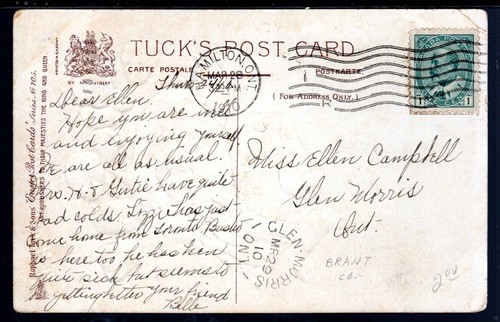 TUCK'S POST CARD
CARTE POSTALE
POSTKARTE.
(FOR ADDRESS ONLY.)
BY APPOINTMENT
HAMILTON, ONT.
MAR 28
1910
R
CANADA POSTAGE
1 1
Thurs
Dear Ellen.
Hope you are well
and enjoying yourself
We are all as usual.
Mrs. H. & Gertie have quite
bad colds. Lizzie has just
come home from Toronto Buster
is here too he has been
quite sick but seems to
be getting better your friend
Belle
Miss Ellen Campbell
Glen Morris
Ont.
GLEN-MORRIS
MR 29
10
ONT
BRANT
CO-
2.00
Raphael Tuck & Sons' "Empire" Post Cards Series No.
ART PUBLISHERS TO THEIR MAJESTIES THE KING AND QUEEN